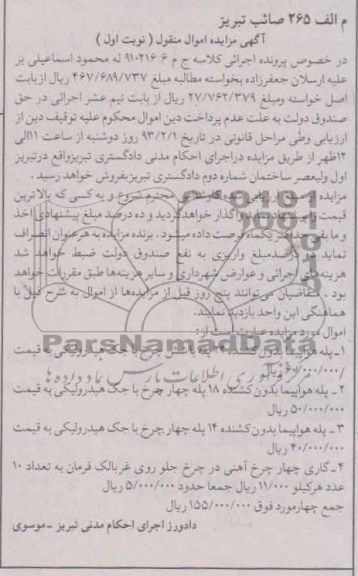 م الف ۲۶۵ صائب تبریز
آگهی مزایده اموال منقول ( نوبت اول )
در خصوص پرونده اجرائی کلاسه ج م ۶ ۹۱۰۲۱۶ له محمود اسماعیلی بر
علیه ارسلان جعفرزاده بخواسته مطالبه مبلغ ۴۶۷/۶۸۹/۷۳۷ ریال از بابت
اصل خواسته ومبلغ ۲۷/۷۶۲/۳۷۹ ریال از بابت نیم عشر اجرائی در حق
صندوق دولت به علت عدم پرداخت دین اموال محکوم علیه توقیف دین از
ارزیابی وطی مراحل قانونی در تاریخ ۹۳/۲/۱ روز دوشنبه از ساعت ۱۱الی
۱۲ظهر از طریق مزایده دراجرای احکام مدنی دادگستری تبریزواقع درتبریز
اول ولیعصر ساختمان شماره دوم دادگستری تبریزبفروش خواهد رسید .
مزایده از مبلغ ارزیابی شده کارشناس محترم شروع و به کسی که بالاترین
قیمت را پیشنهاد نماید واگذار خواهد گردید و ده درصد مبلغ پیشنهادی اخذ
و مابقی حداکثر یکماه فرصت داده میشود . برنده مزایده به هر عنوان انصراف
نماید ده درصدمبلغ واریزی به نفع صندوق دولت ضبط خواهد شد
هزینه‌های اجرائی و عوارض شهرداری و سایر هزینه‌ها طبق مقررات خواهد
بود . متقاضیان می‌توانند پنج روز قبل از مزایده‌ها از اموال به شرح ذیل با
هماهنگی این واحد بازدید نمایند.
اموال مورد مزایده عبارت است از:
ParsNamadData
۱-پله هواپیما بدون کشنده ۲۴ پله با شش چرخ با جک هیدرولیکی به قیمت
ریال
۲- پله هواپیما بدون کشنده ۱۸ پله چهار چرخ با جک هیدرولیکی به قیمت
۵۰/۰۰۰/۰۰۰ ریال
۳- پله هواپیما بدون کشنده ۱۴ پله چهار چرخ با جک هیدرولیکی به قیمت
۴۰/۰۰۰/۰۰۰ ریال
۴-گاری چهار چرخ آهنی در چرخ جلو روی غربالک فرمان به تعداد ۱۰
عدد هرکیلو ۱۱/۰۰۰ ریال جمعا حدود ۵/۰۰۰/۰۰۰ ریال
جمع چهارمورد فوق ۱۵۵/۰۰۰/۰۰۰ ریال
دادورز اجرای احکام مدنی تبریز -موسوی